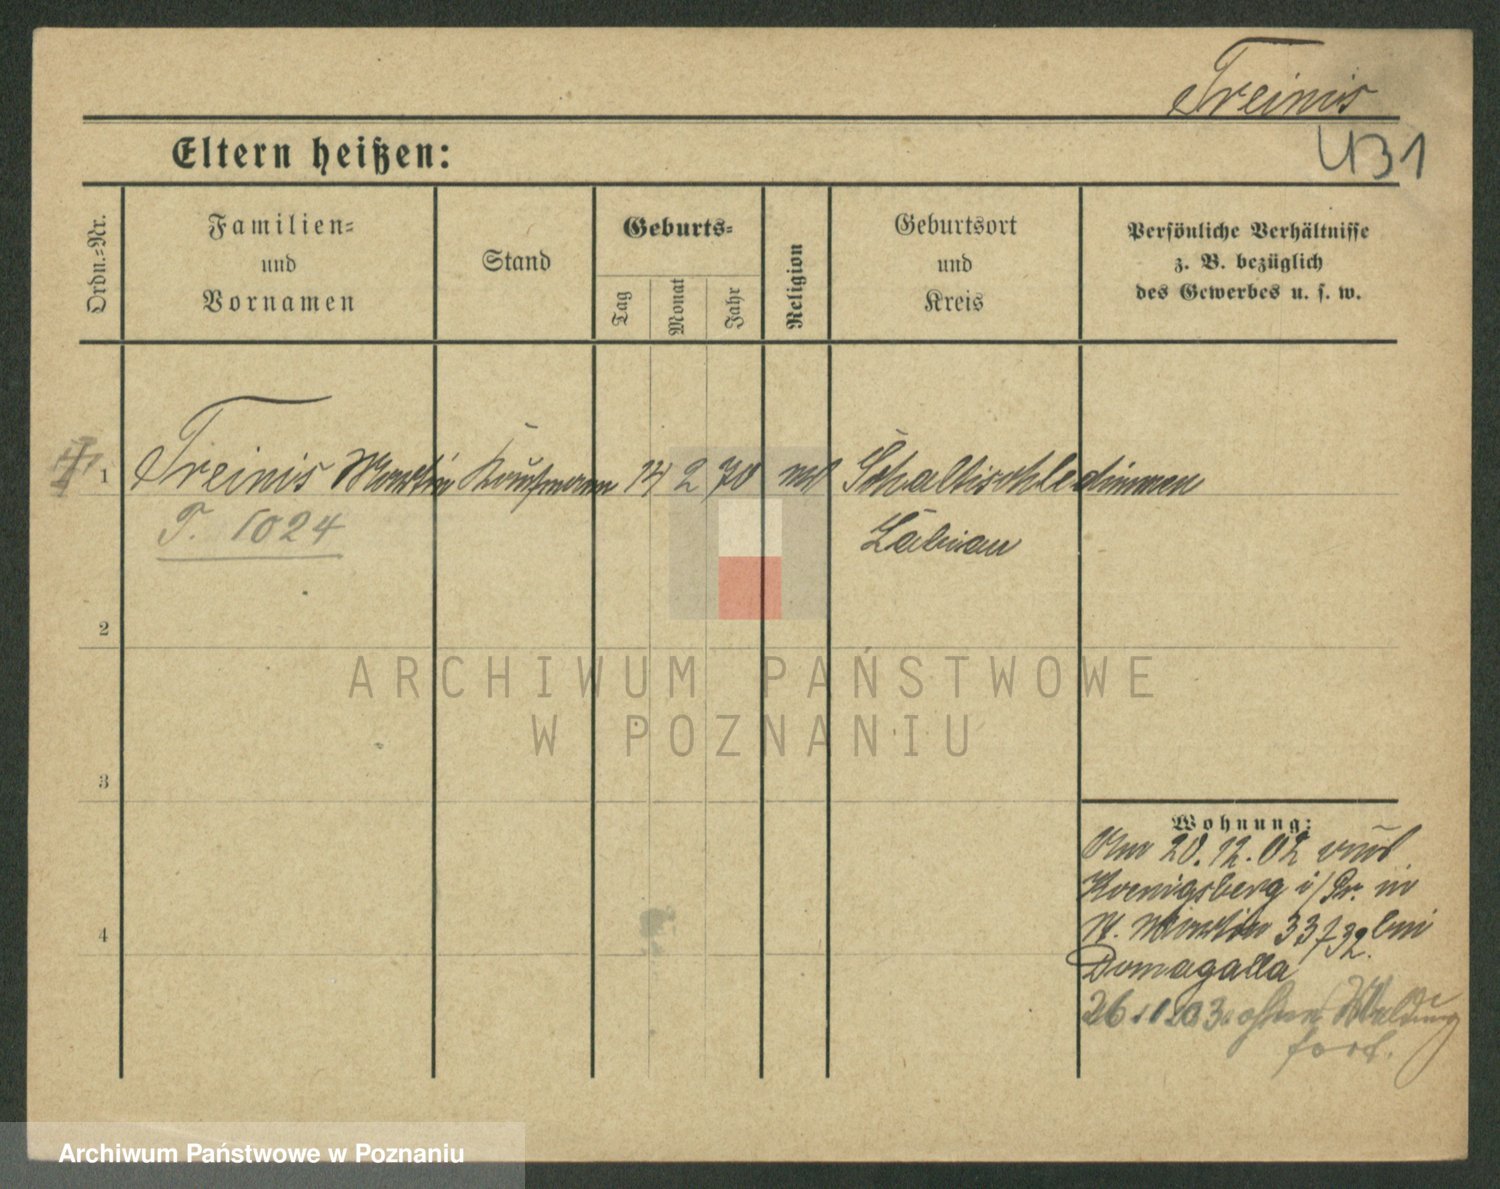 Treinis
431
Eltern heißen:
Ordn.-Nr.
Familien-
und
Vornamen
Stand
Geburts-
Tag
Monat
Jahr
Religion
Geburtsort
und
Kreis
Persönliche Verhältnisse
z. B. bezüglich
des Gewerbes u. s. w.
1 Treinis Martin Kaufmann 14 2 70 Schaltischledimmen
T. 1024
Labiau
2
ARCHIWUM PAŃSTWOWE
W POZNANIU
3
Wohnung:
Am 20.12.02 aus
Koenigsberg i/Pr. in
St. Martin 33 bei
4
Domagalla
26. 03. ohne Meldung
fort.
Archiwum Państwowe w Poznaniu